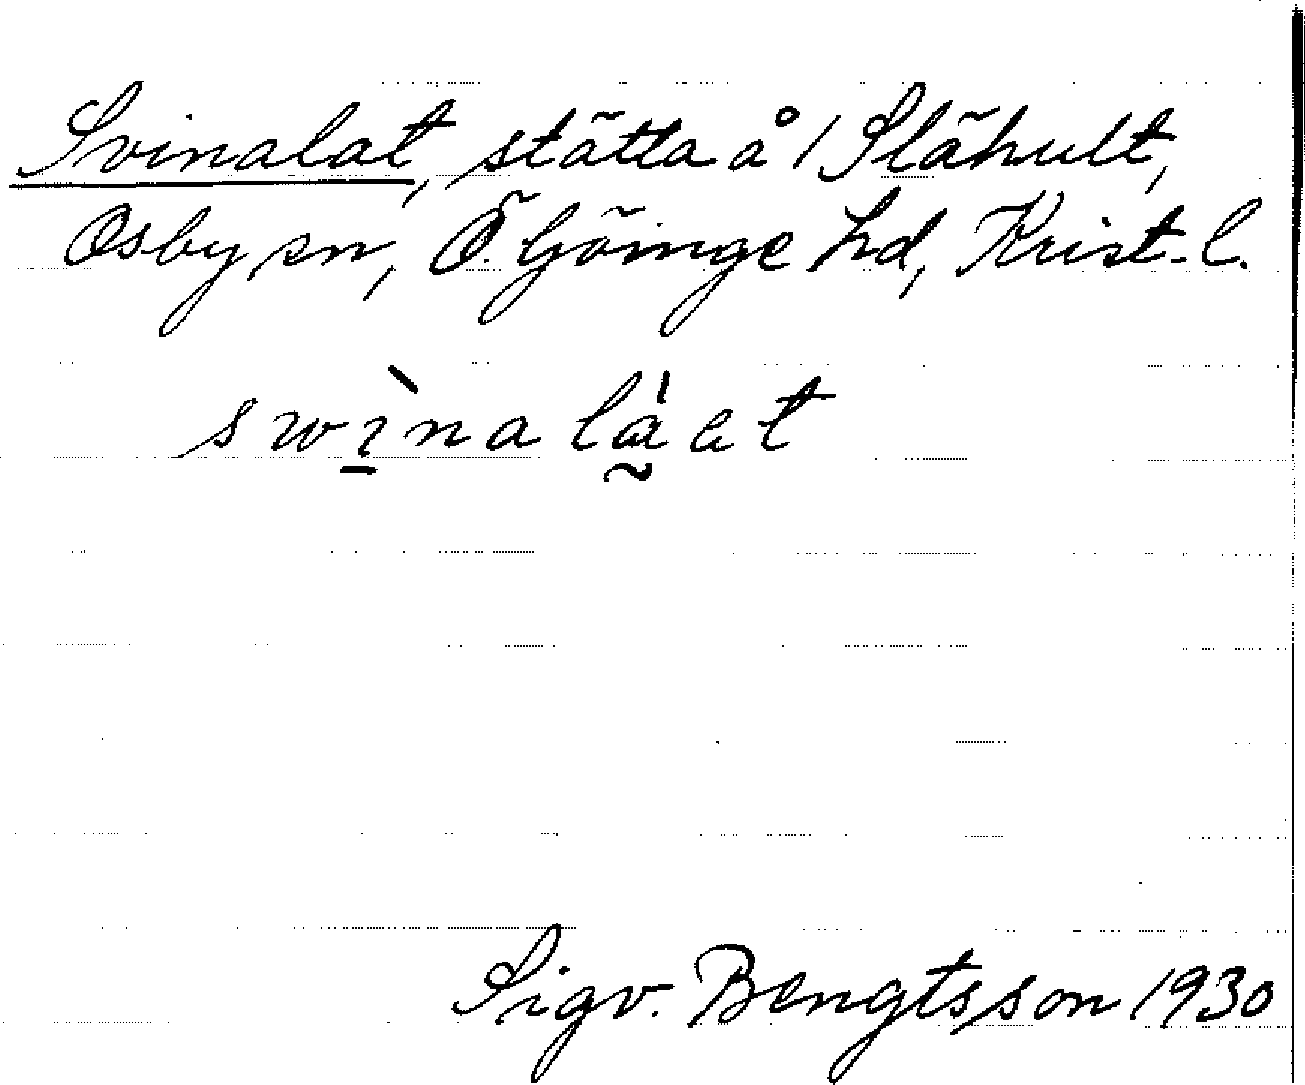 Svinalat, stätta å 1 Slähult,
Osby sn, Ö. Göinge hd, Krist. l.
swìnaláet
Sigv. Bengtsson 1930